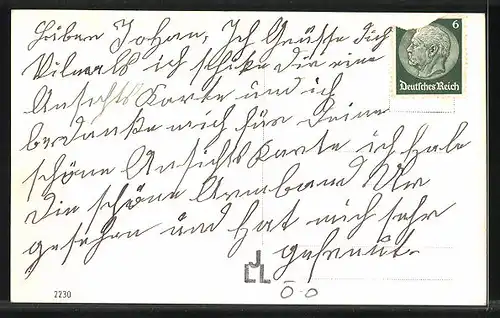 Lieber Johan, Ich Grüsse Dich
Vilmals ich schike Dir eine
Ansichts Karte und ich
bedanke mich für Deine
schöne Ansichts Karte ich habe
die schöne Armband Ur
gesehen und hat mich sehr
gefreut.
6
Deutsches Reich
2230